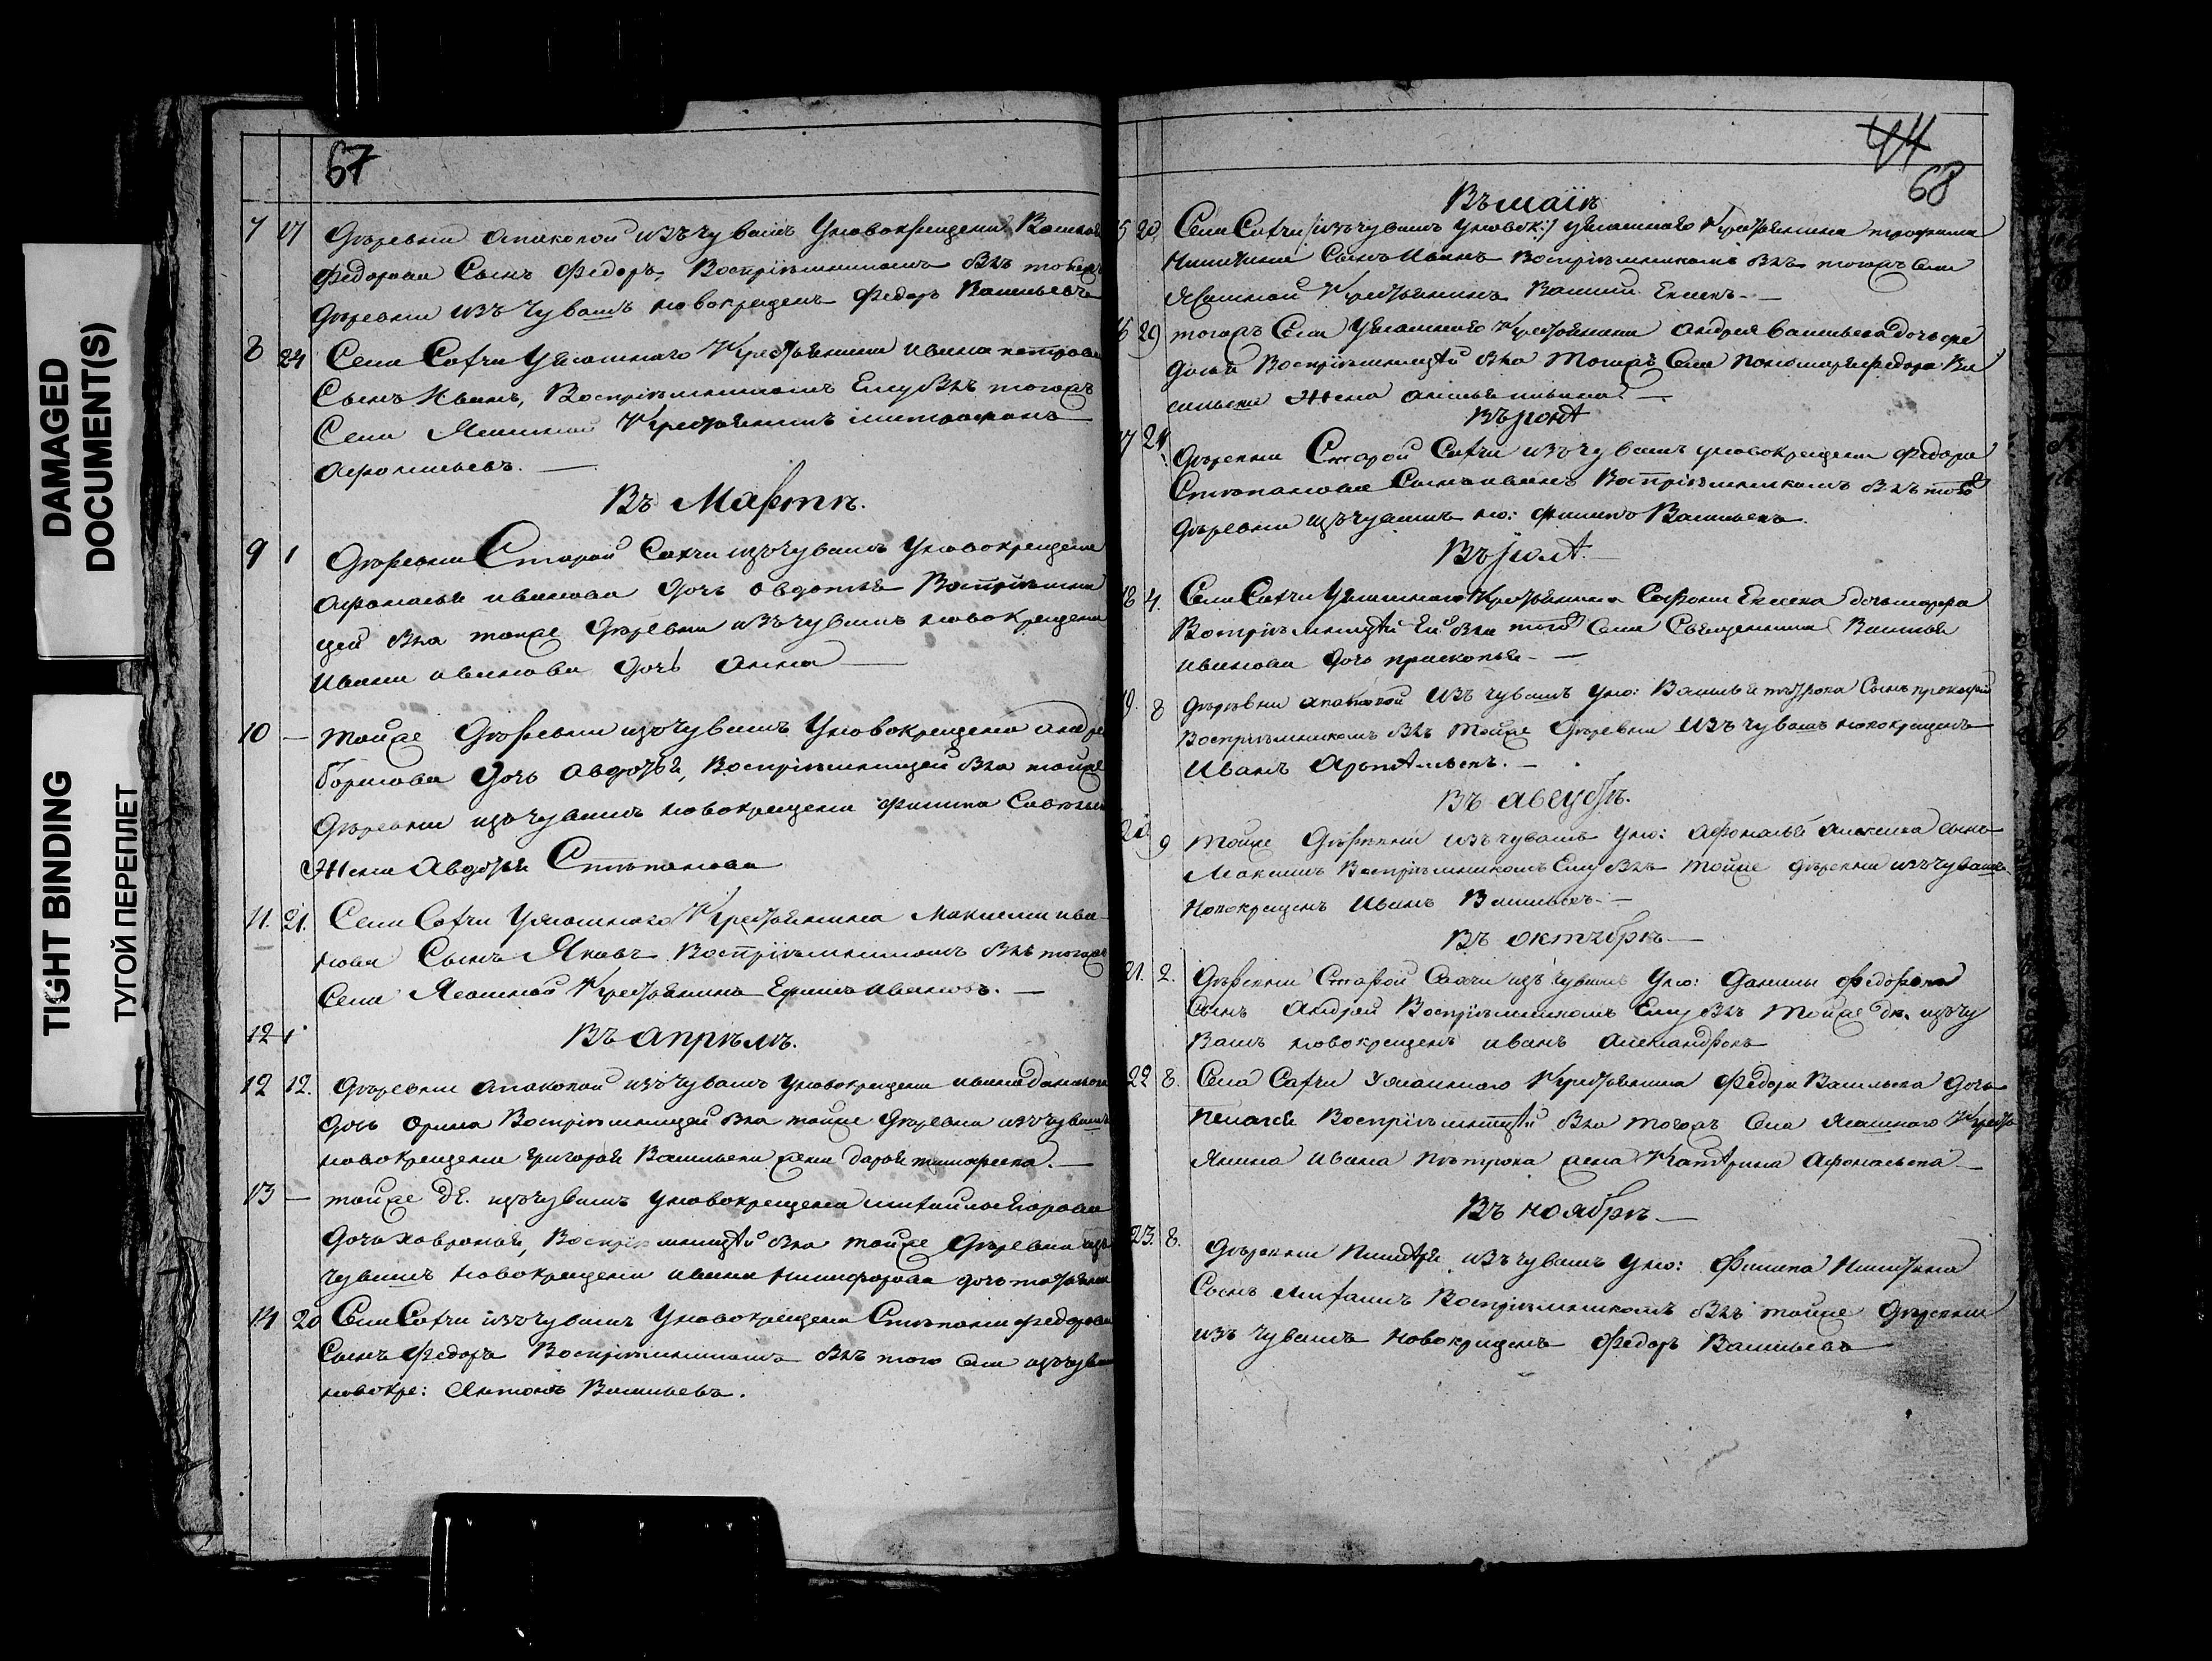 DAMAGED
DOCUMENT(S)
TIGHT BINDING
ТУГОЙ ПЕРЕПЛЕТ
67
7 17 Дѣревни апаковой изъ чувашъ уновокрещена Василья
Федорова Сынъ Федоръ, Воспрiѣмникомъ былъ тойже
дѣревни изъ Чувашъ новокрещенъ Федоръ Васильевъ
8 24 Села Сатчи уясашнаго Крестьянина ивана петрова
Сынъ Иванъ, Воспрiѣмникомъ Ему былъ тогожъ
Села Ясашной Крестьянинъ митрофанъ
афонасьевъ.
Въ Мартѣ.
9 1 Дѣревни Старой Сатчи изъ чувашъ уновокрещена
афонасья иванова дочь овдотья Воспрiѣмни
цей была тойже дѣревни изъ чувашъ новокрещена
ивана иванова дочь анна
10 — тойже Дѣревни изъ чувашъ уновокрещена андрея
борисова Дочь Авдотья, Воспрiѣмницей была тойже
дѣревни изъ чувашъ новокрещена филипа
Жена Авдотья Стѣпанова
11. 21. Села Сатчи уясашнаго Крестьянина Максима ива-
нова Сынъ Яковъ Воспрiѣмникомъ былъ тогожъ
Села Ясашной Крестьянинъ Ефимъ ивановъ.
12 1
Въ апрѣлѣ.
12 12. Дѣревни апаковой изъ чувашъ уновокрещена ивана данилова
дочь орина Воспрiѣмницей была тойже дѣревни изъ чувашъ
новокрещена григорья Васильева жена дарья тимофеева.
13 — тойже де. изъ чувашъ уновокрещена михайла
дочь хавронья, Воспрiѣмницей была тойже дѣревни изъ
чувашъ новокрещена ивана никифорова дочь татьяна
14 20 Села Сатчи изъ чувашъ уновокрещена Стѣпана федорова
Сынъ федоръ Воспрiѣмникомъ былъ того села изъ чувашъ
новокре: Антонъ Васильевъ.
44
68
Въ маiѣ
15 20 Села Сатчи /изъ чувашъ уновок:/ уясашнаго Крестьянина трофима
Никитина Сынъ Иванъ воспрiѣмникомъ былъ тогожъ села
ясашной Крестьянинъ Василий
16 29 тогожъ Села уясашнаго Крестьянина андрея васильева дочь фе
досья Воспрiѣмницей была тогожъ Села пономаря федора Ва
сильева Жена
Въ iюнѣ
17 24 дѣревни Старой Сатчи изъ чувашъ уновокрещена федора
Стѣпанова Сынъ иванъ Воспрiѣмникомъ былъ той
дѣревни изъ чувашъ но: филипъ Васильевъ.
Въ iюлѣ.
18 4. Села Сатчи уясашнаго Крестьянина дочь марфа
Воспрiѣмницей Ей была того Села Священника Василья
иванова дочь прасковья
19. 8 дѣревни апаковой изъ чувашъ уно: Василья петрова Сынъ прокофей
Воспрiѣмникомъ былъ тойже дѣревни изъ чувашъ новокрещенъ
Иванъ
Въ августѣ.
20 9 тойже Дѣревни изъ чувашъ уно: афонасья алексеева сынъ
Максимъ Воспрiѣмникомъ Ему былъ тойже дѣревни изъ чувашъ
новокрещенъ Иванъ Васильевъ
Въ октябрѣ
21. 2. Дѣревни Старой Сатчи изъ чувашъ уно: данилы федорова
Сынъ Андрей Воспрiѣмникомъ Ему былъ тойже де. изъ чу
вашъ новокрещенъ иванъ александровъ
22 8. Села Сатчи уясашнаго Крестьянина федора Васильева дочь
пелагея Воспрiѣмницей была тогожъ Села ясашного Кресть
янина ивана петрова жена Катерина афонасьева
Въ ноябрѣ
23. 8. дѣревни изъ чувашъ уно: филипа Никитина
Сынъ михаилъ Воспрiѣмникомъ былъ тойже дѣревни
изъ чувашъ новокрещенъ федоръ Васильевъ